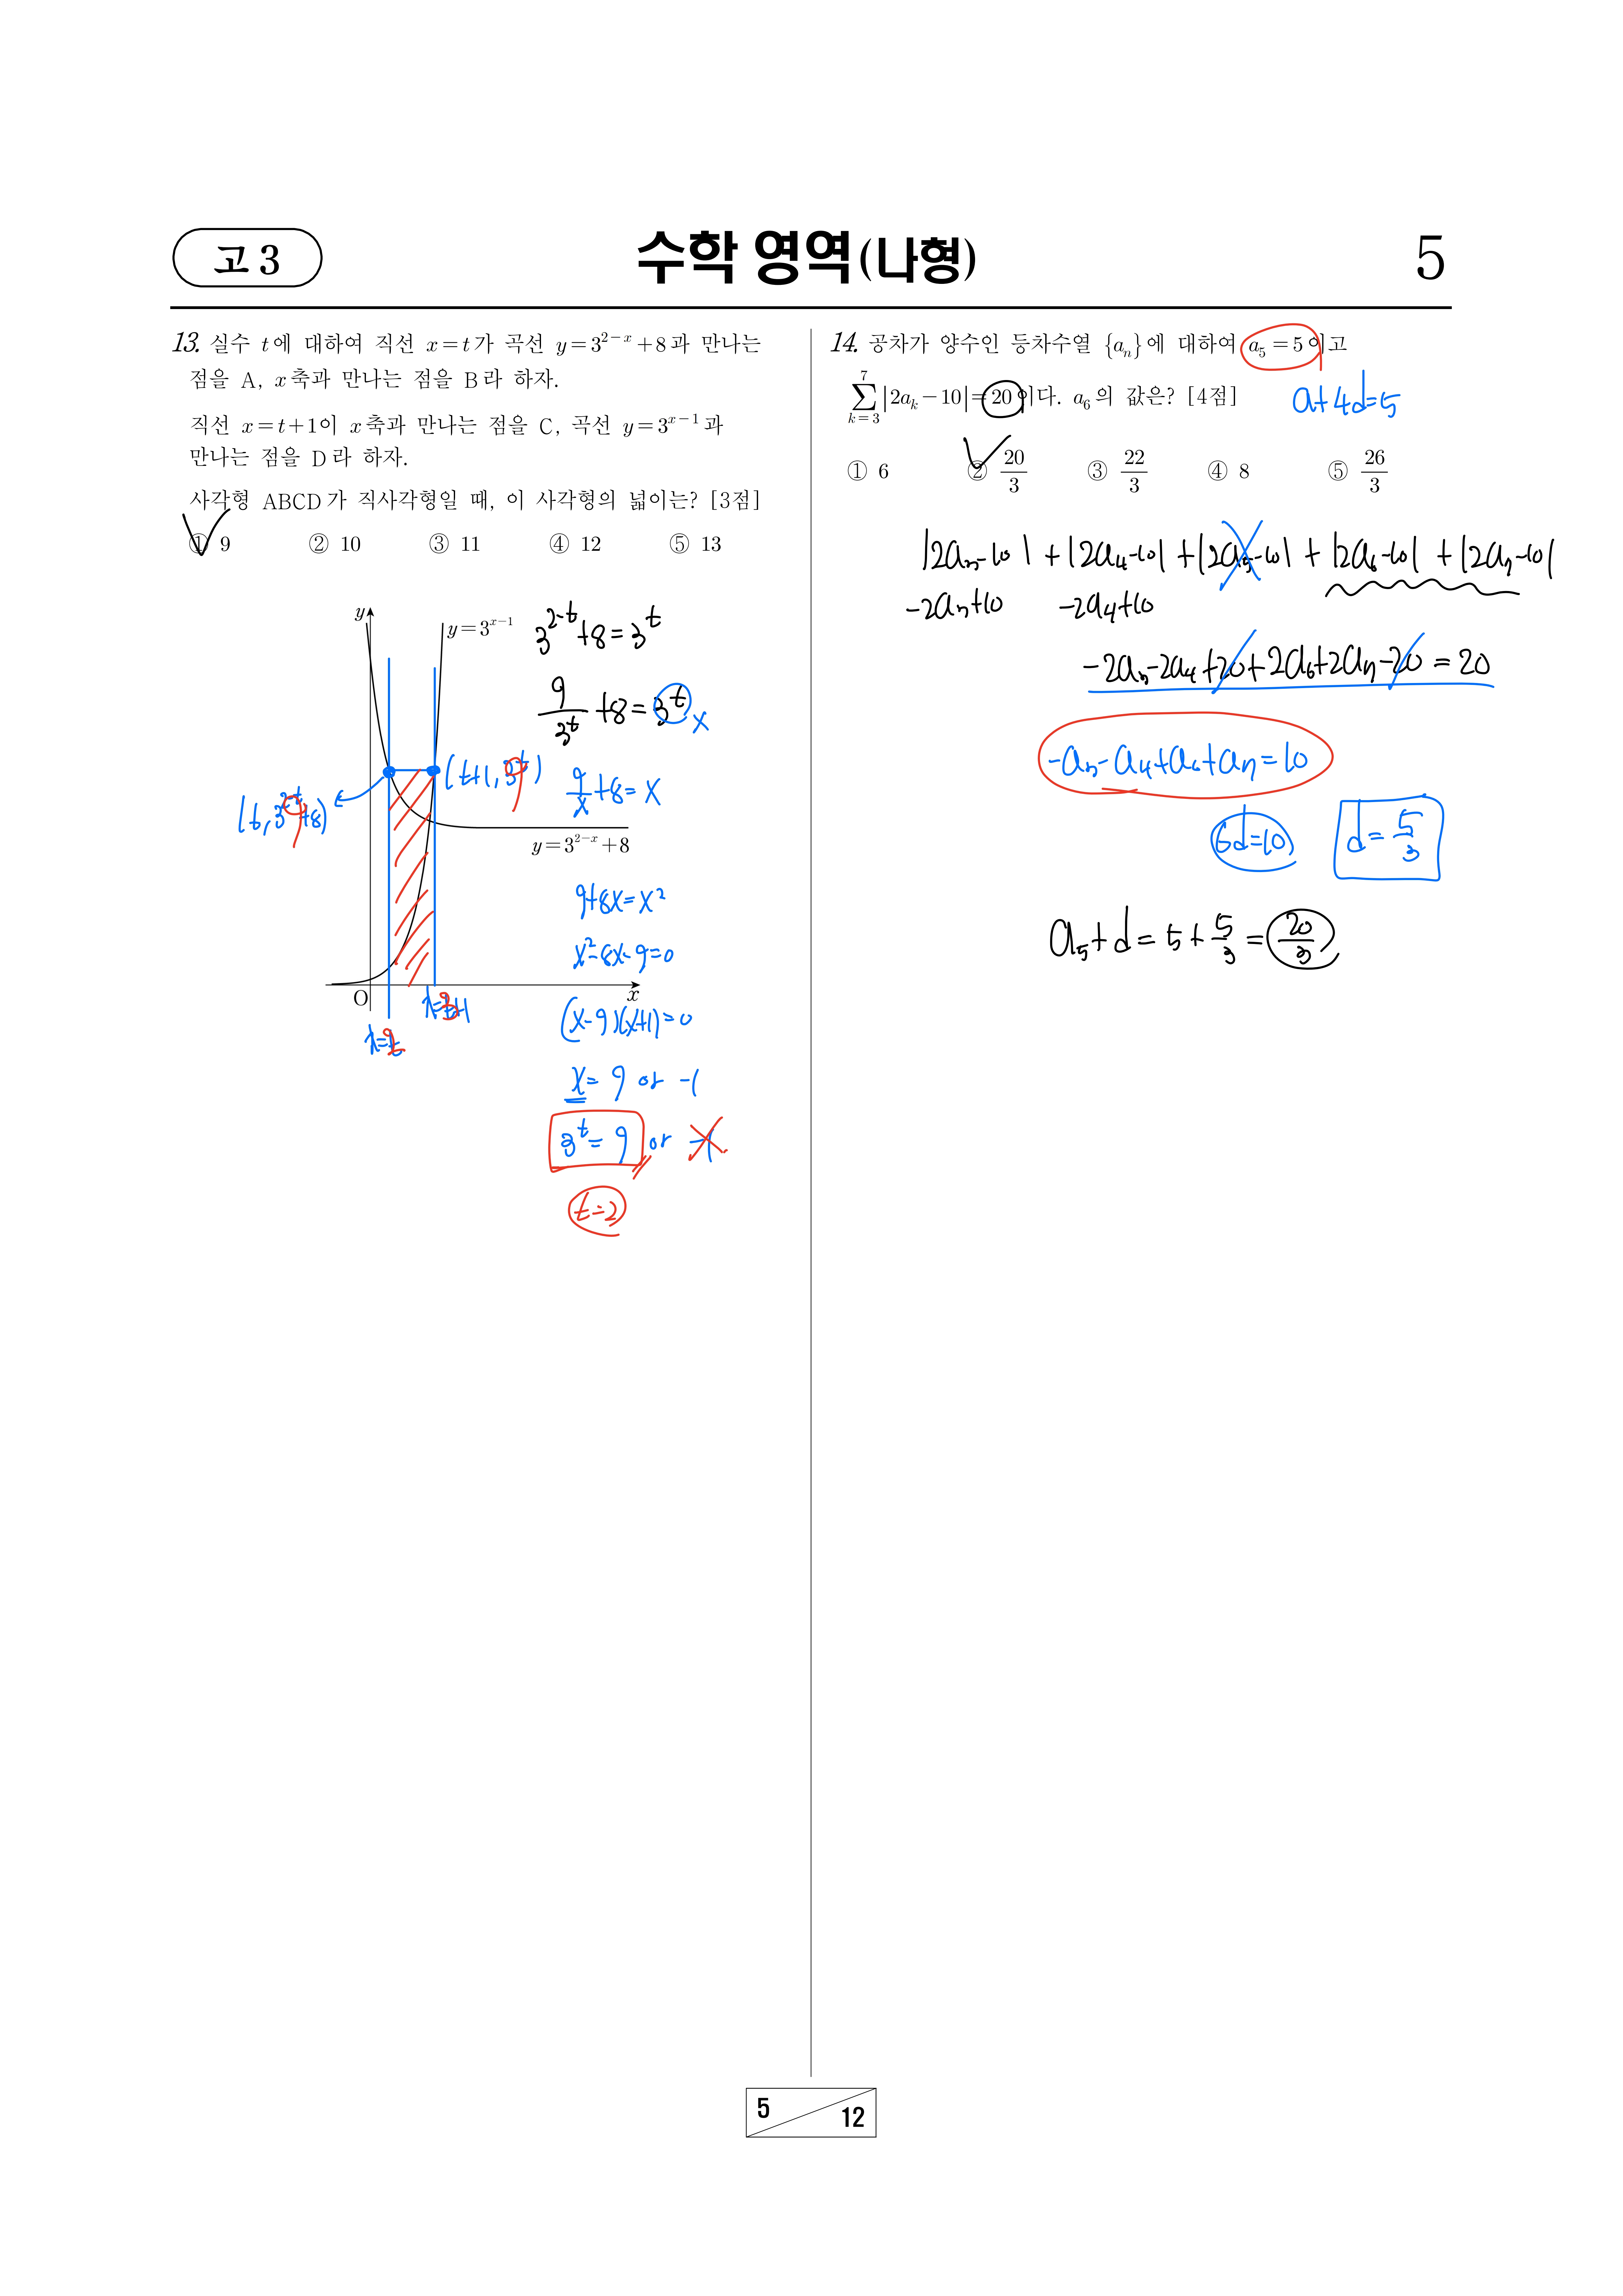 고 3
수학 영역(나형)
5
13. 실수 t에 대하여 직선 x=t가 곡선 y=3^{2-x}+8과 만나는
점을 A, x축과 만나는 점을 B라 하자.
직선 x=t+1이 x축과 만나는 점을 C, 곡선 y=3^{x-1}과
만나는 점을 D라 하자.
사각형 ABCD가 직사각형일 때, 이 사각형의 넓이는? [3점]
① 9 ② 10 ③ 11 ④ 12 ⑤ 13
y
y=3^{x-1}
3^{2-t}+8=3^t
9/3^t +8=3^t
x
(t+1, 3^t)
9
9/x +8=x
(t, 3^{2-t}+8)
9
y=3^{2-x}+8
9+8x=x²
x²-8x-9=0
O
x
x=t+1
3
(x-9)(x+1)=0
x=t
2
x= 9 or -1
3^t= 9 or -1
t=2
14. 공차가 양수인 등차수열 {a_n}에 대하여 a_5=5이고
\sum_{k=3}^{7}|2a_k-10|=20이다. a_6의 값은? [4점]
a+4d=5
① 6 ② 20/3 ③ 22/3 ④ 8 ⑤ 26/3
|2a_3-10|+|2a_4-10|+|2a_5-10|+|2a_6-10|+|2a_7-10|
-2a_3+10 -2a_4+10
-2a_3-2a_4+20+2a_6+2a_7-20=20
-a_3-a_4+a_6+a_7=10
6d=10 d=5/3
a_5+d=5+5/3=20/3
5
12